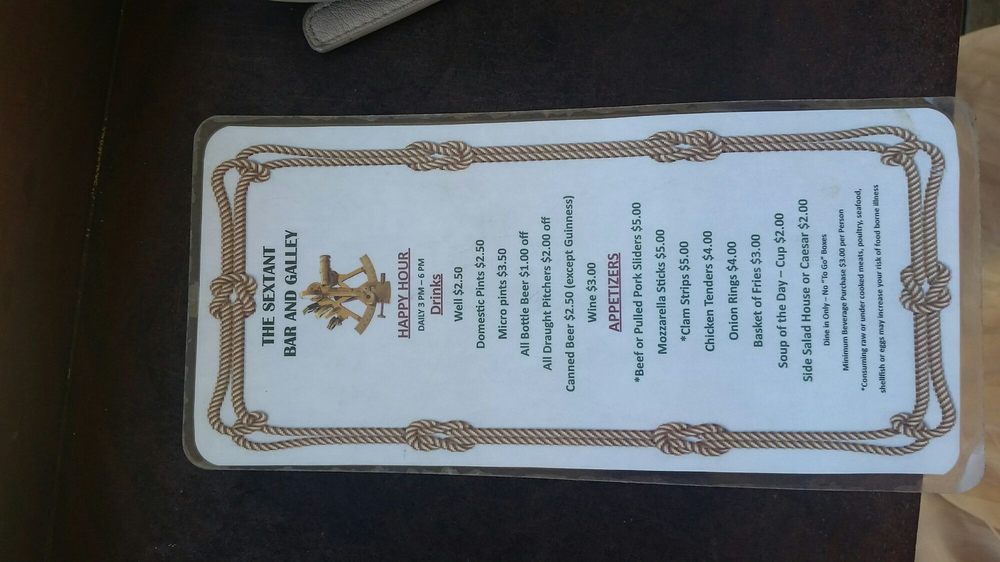 THE SEXTANT
BAR AND GALLEY
HAPPY HOUR
DAILY 3 PM – 6 PM
Drinks
Well $2.50
Domestic Pints $2.50
Micro pints $3.50
All Bottle Beer $1.00 off
All Draught Pitchers $2.00 off
Canned Beer $2.50 (except Guinness)
Wine $3.00
APPETIZERS
*Beef or Pulled Pork Sliders $5.00
Mozzarella Sticks $5.00
*Clam Strips $5.00
Chicken Tenders $4.00
Onion Rings $4.00
Basket of Fries $3.00
Soup of the Day – Cup $2.00
Side Salad House or Caesar $2.00
Dine in Only – No "To Go" Boxes
Minimum Beverage Purchase $3.00 per Person
*Consuming raw or under cooked meats, poultry, seafood,
shellfish or eggs may increase your risk of food borne illness